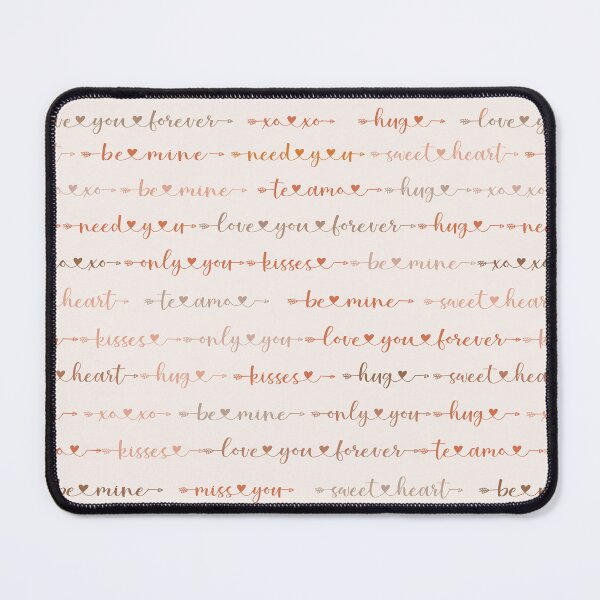 ve you forever xo xo hug love y
be mine need y u sweet heart
xo be mine te amo hug xo xo
need y u love you forever hug nee
o xo only you kisses be mine xo xo
heart te amo be mine sweet hear
kisses only you love you forever k
heart hug kisses hug sweet hea
xo xo be mine only you hug x
kisses love you forever te amo
be mine miss you sweet heart be m